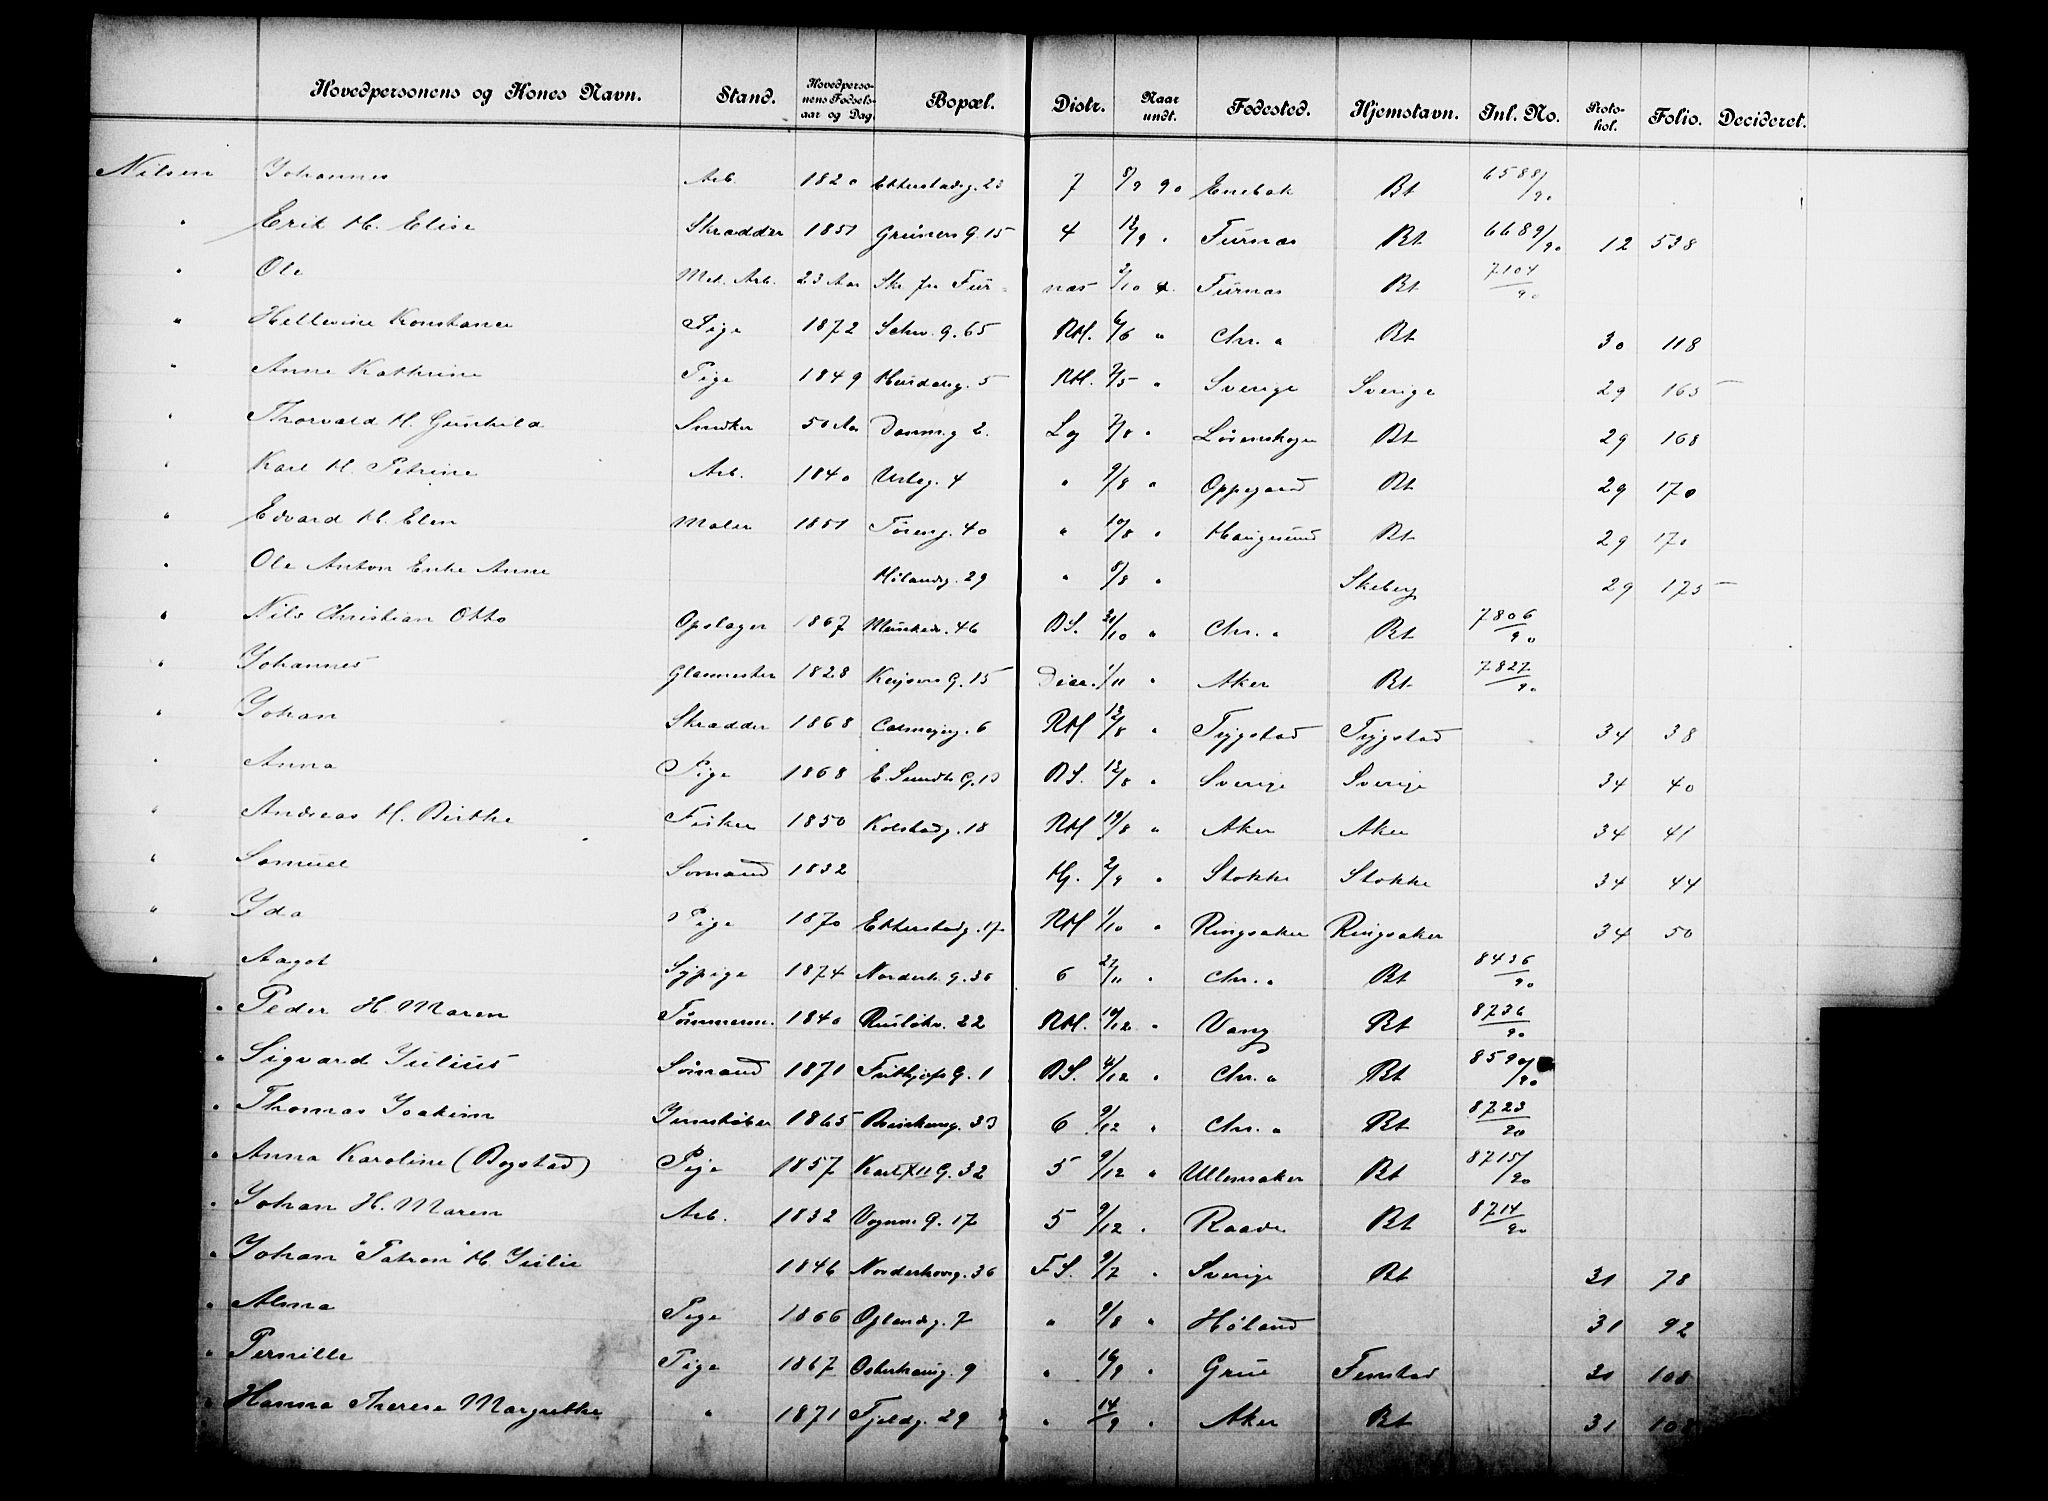 Hovedpersonens og Kones Navn. Stand. Hovedpersonens Fødselsaar og Dag. Bopæl. Distr. Naar undt. Fødested. Hjemstavn. Inl. No. Protokol. Folio. Decideret.
Nilsen Johannes Arb. 1820 Etterstadg. 23 7 8/9 90 Enebak Bt 6588/90
" Erik H. Elise Skrædder 1851 Grüners G. 15 4 12/9 " Furnæs Bt 6689/90 12 538
" Ole Met. Arb. 23 Aar Skr fra Furnæs 2/10 Furnæs Bt 7104/90
" Hellevine Konstance Pige 1872 Schw. g. 65 RH. 6/6 " Chr. a Bt 30 118
" Anne Kathrine Pige 1849 Hurdalsg. 5 RH. " Sverige Sverige 29 165
" Thorvald H. Gunhild Snedker 50 Aar 2 Lg " Lørenskogen Bt 29 168
" Karl H. Petrine Arb. 1840 Urteg. 4 " 9/8 " Oppegaard Bt 29 170
" Edvard H. Elen Maler 1851 Tøieng. 40 " 10/8 " Haugesund Bt 29 170
" Ole Anton Enke Anne Hølandsg. 29 " 8/8 " Skeberg 29 175
" Nils Christian Otto Opslager 1867 Munkedr. 46 BS. /10 " Chr. a Bt 7806/90
" Johannes Glasmester 1828 Keysers G. 15 1/11 " Aker Bt 7827/90
" Johan Skrædder 1868 Calmeyerg. 6 RH 12/8 " Trygstad Trygstad 34 38
" Anna Pige 1868 E. Sundts G. BS. 12/8 " Sverige Sverige 34 40
" Andreas H. Birthe Fisker 1850 Kolstadg. 18 RH 19/8 " Aker Aker 34 41
" Samuel Sømand 1832 Hg. 2/9 " Stokke Stokke 34 44
" Ida Pige 1870 Etterstadg. 17 RH 1/10 " Ringsaker Ringsaker 34 50
" Aagot Sypige 1874 Norderh. G. 36 6 /11 " Chr. a Bt 8436/90
" Peder H. Maren Tømmerm. 1840 Rusløkv. 22 RH. 10/12 " Vang Bt 8736/90
" Sigvard Julius Sømand 1871 Frithjofs G. 1 BS. 4/12 " Chr. a Bt 8590/90
" Thomas Joakim Jernstøber 1865 Brinkeng. 33 6 9/12 " Chr. a Bt 8723/90
" Anna Karoline (Bogstad) Pige 1857 Karl XII G. 32 5 9/12 " Ullensaker Bt 8715/90
" Johan H. Maren Arb. 1832 Vognm. G. 17 5 9/12 " Raade Bt 8714/90
" Johan "Patron" H. Julie 1846 Norderhovg. 36 FS. 9/7 " Sverige Bt 31 78
" Alma Pige 1866 Oplandsg. 7 " 9/8 " Høland 31 92
" Pernille Pige 1867 Osterhausg. 9 " 16/9 " Grue Fenstad 31 108
" Hanna Therese Margrethe " 1871 Fjeldg. 29 " 14/9 " Aker Bt 31 108